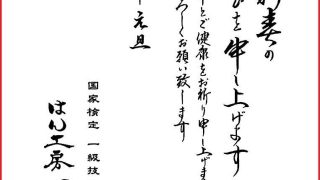 春の
びを申し上げます
とご健康をお祈り申し上げま
ろしくお願い致します
元旦
国家検定 一級技
はん工房